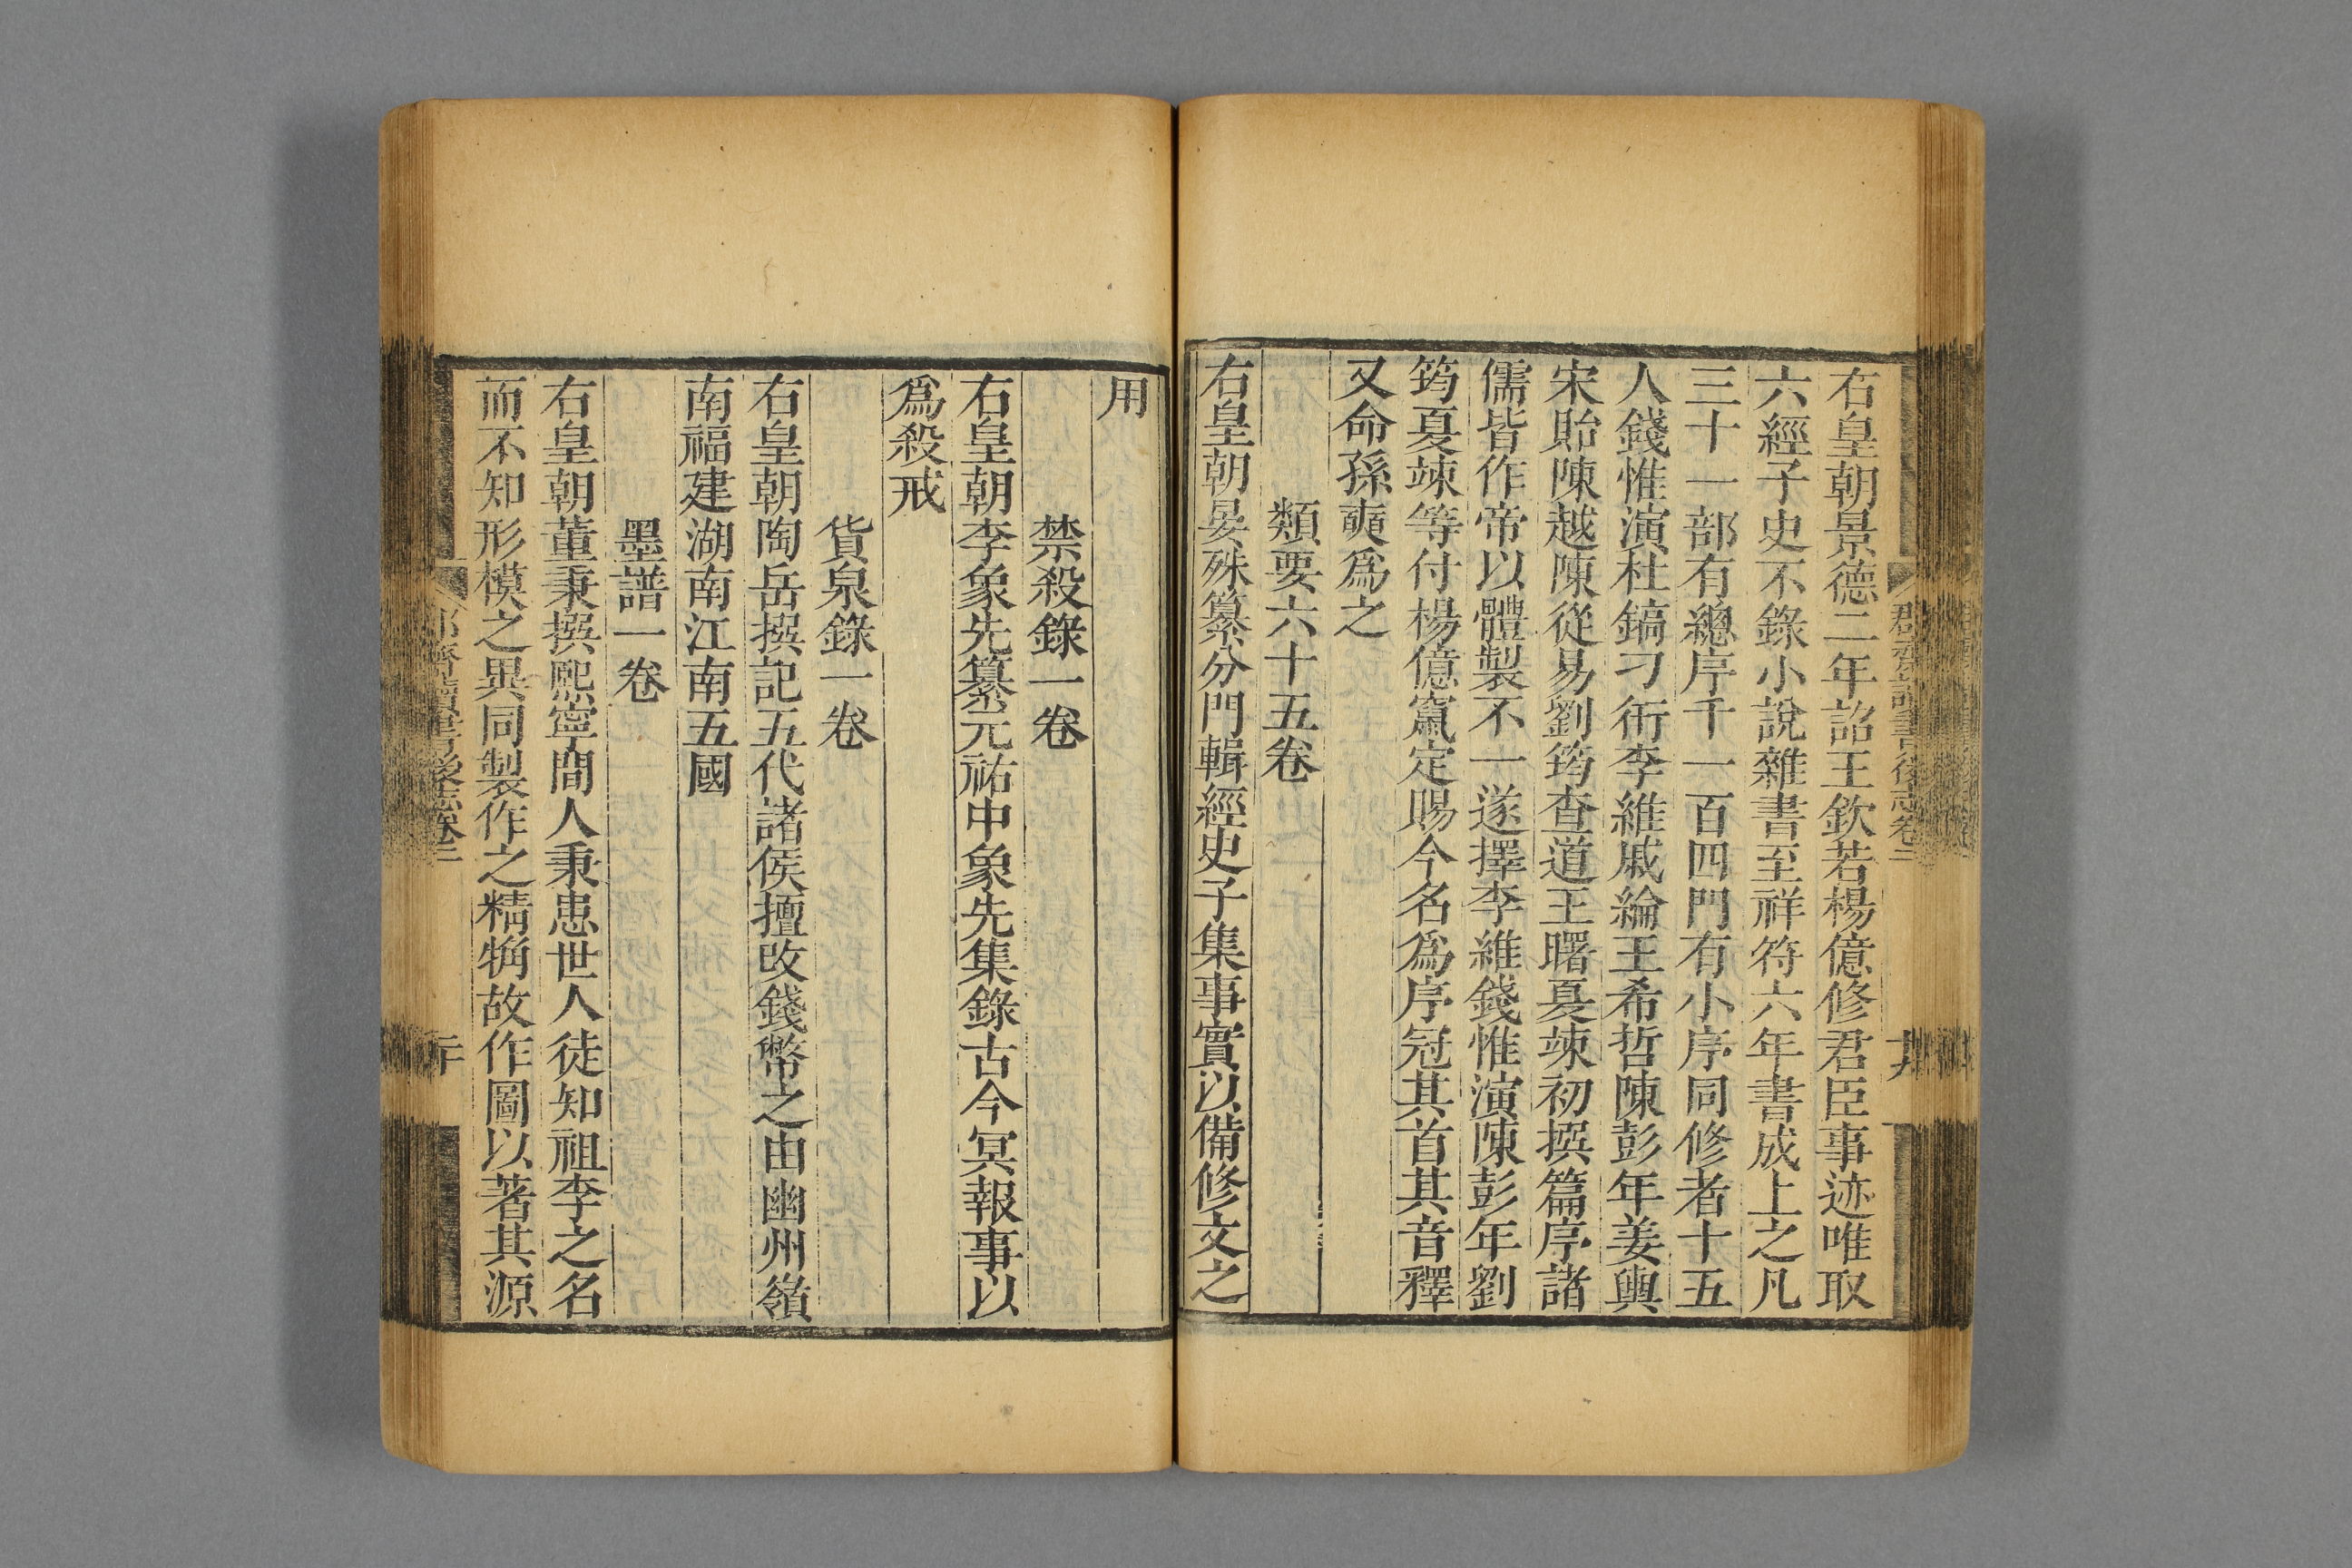 右皇朝景德二年詔王欽若楊億修君臣事迹唯取
六經子史不錄小說雜書至祥符六年書成上之凡
三十一部有總序千一百四門有小序同修者十五
人錢惟演杜鎬刁衎李維戚綸王希哲陳彭年姜輿
宋貽陳越陳從易劉筠查道王曙夏竦初撰篇序諸
儒皆作帝以體製不一遂擇李維錢惟演陳彭年劉
筠夏竦等付楊億竄定賜今名爲序冠其首其音釋
又命孫奭爲之
類要六十五卷
右皇朝晏殊纂分門輯經史子集事實以備修文之
用
禁殺錄一卷
右皇朝李象先纂元祐中象先集錄古今冥報事以
爲殺戒
貨泉錄一卷
右皇朝陶岳撰記五代諸侯擅改錢幣之由幽州嶺
南福建湖南江南五國
墨譜一卷
右皇朝董秉撰熙寧間人秉患世人徒知祖李之名
而不知形模之異同製作之精觕故作圖以著其源